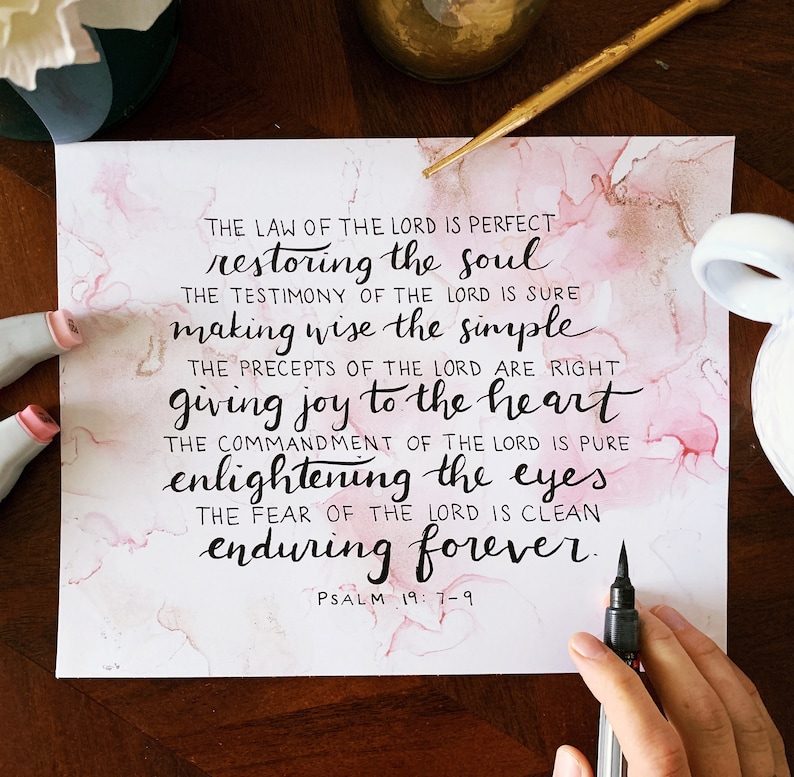 THE LAW OF THE LORD IS PERFECT
restoring the soul
THE TESTIMONY OF THE LORD IS SURE
making wise the simple
THE PRECEPTS OF THE LORD ARE RIGHT
giving joy to the heart
THE COMMANDMENT OF THE LORD IS PURE
enlightening the eyes
THE FEAR OF THE LORD IS CLEAN
enduring forever.
PSALM 19:7-9